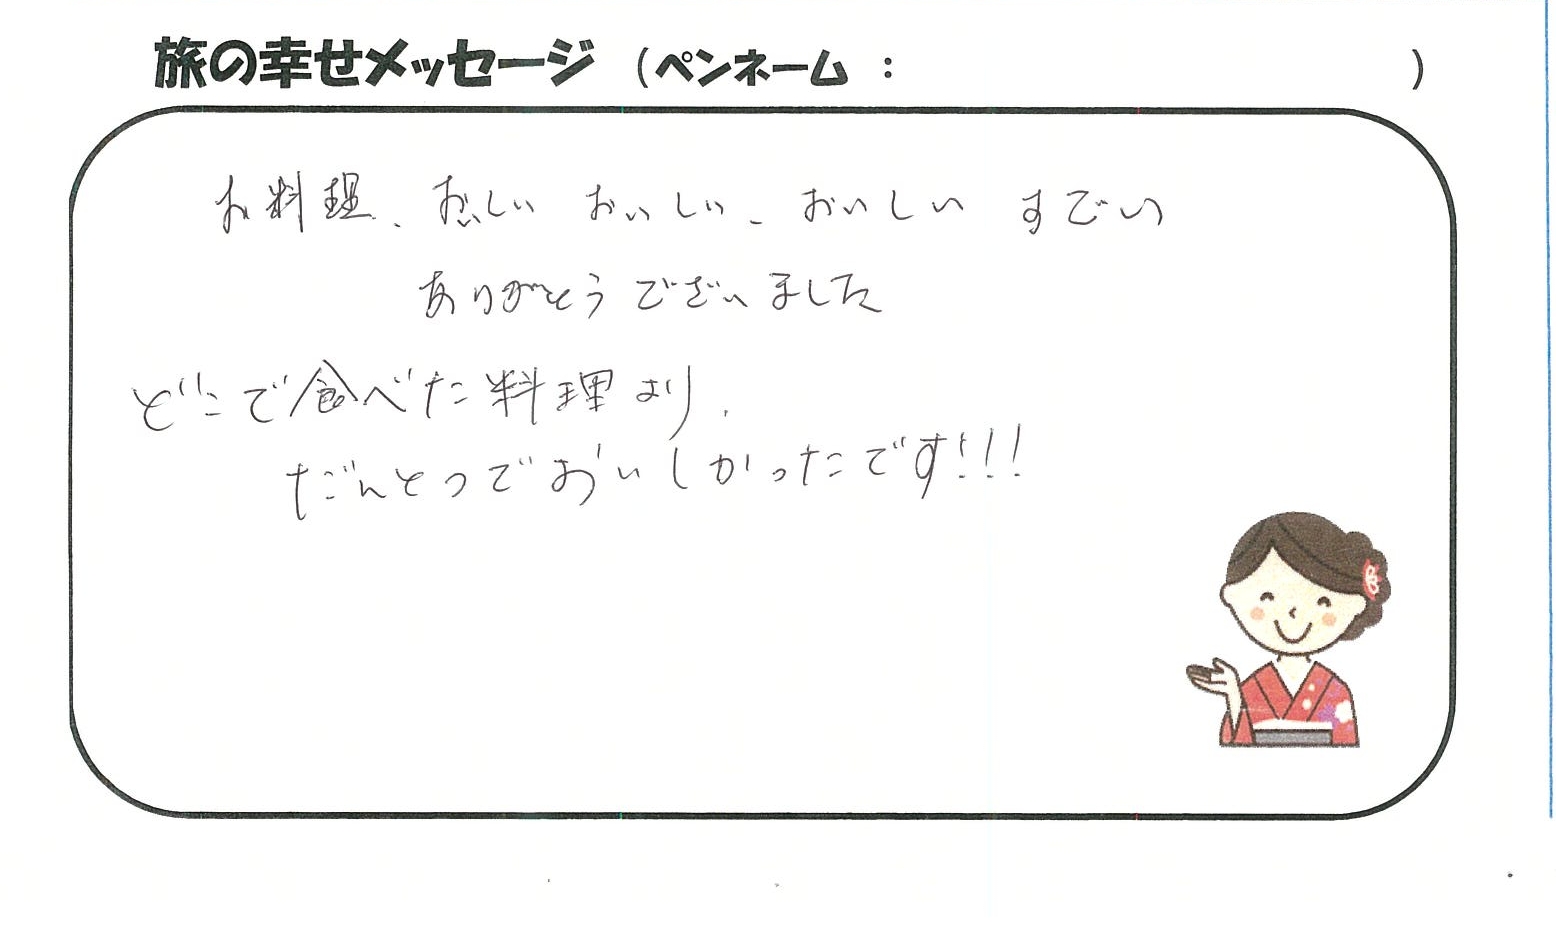 旅の幸せメッセージ (ペンネーム : )
お料理、おいしい おいしい、おいしい すごい
ありがとうございました
どこで食べた料理より、
だんとつでおいしかったです!!!